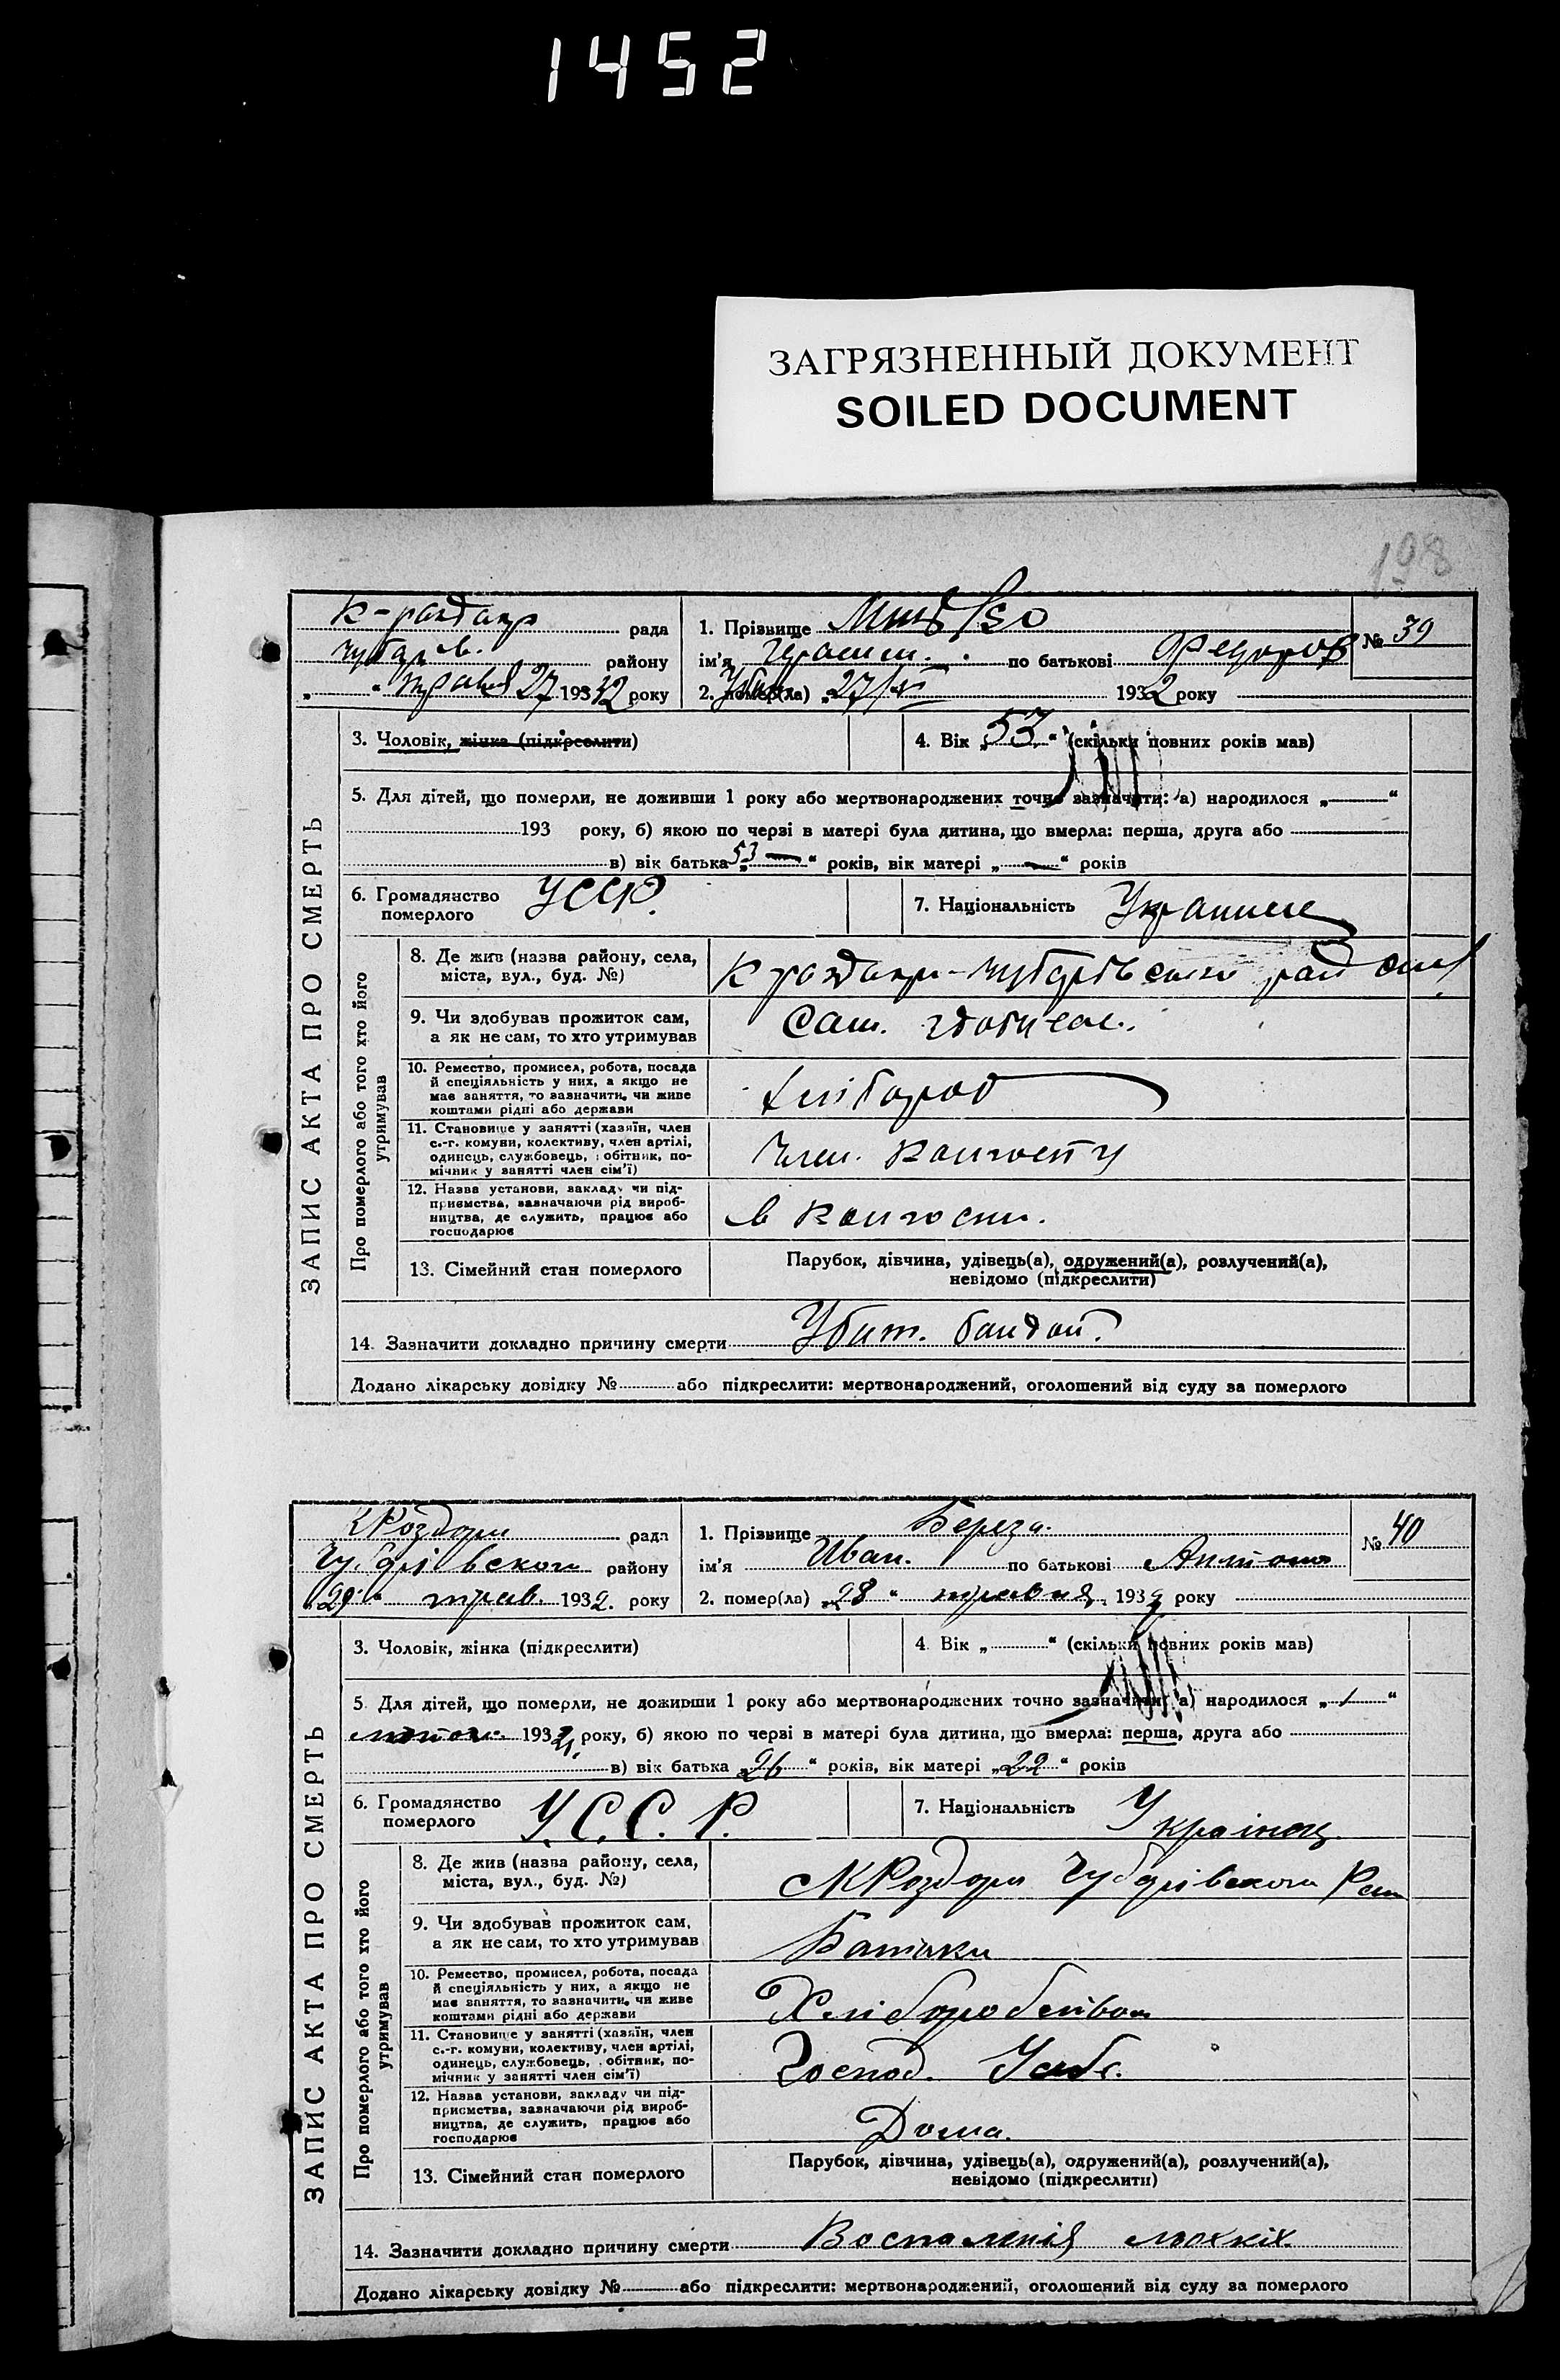 1452
ЗАГРЯЗНЕННЫЙ ДОКУМЕНТ
SOILED DOCUMENT
198
К-роздор рада
Чубарів. району
„ “ травня 27 1932 року
1. Прізвище
ім’я Герасим. по батькові Федоров
№ 39
2. помер(ла) „27/V 1932 року
3. Чоловік, жінка (підкреслити)
4. Вік „53“ (скільки повних років мав)
5. Для дітей, що померли, не доживши 1 року або мертвонароджених точно зазначити: а) народилося „—“
193 року, б) якою по черзі в матері була дитина, що вмерла: перша, друга або
в) вік батька „53 —“ років, вік матері „—“ років
6. Громадянство померлого УССР.
7. Національність Украинец
ЗАПИС АКТА ПРО СМЕРТЬ
Про померлого або того хто його утримував
8. Де жив (назва району, села,
міста, вул., буд. №)
К роздори-Чубарівского рай
9. Чи здобував прожиток сам,
а як не сам, то хто утримував
Сам. здобував.
10. Ремество, промисел, робота, посада
й спеціяльність у них, а якщо не
має заняття, то зазначити, чи живе
коштами рідні або держави
Хлібороб
11. Становище у занятті (хазяїн, член
с.-г. комуни, колективу, член артілі,
одинець, службовець, робітник, по-
мічник у занятті член сім’ї)
Член. Колгоспу
12. Назва установи, закладу чи під-
приємства, зазначаючи рід вироб-
ництва, де служить, працює або
господарює
в колгоспи.
13. Сімейний стан померлого
Парубок, дівчина, удівець(а), одружений(а), розлучений(а),
невідомо (підкреслити)
14. Зазначити докладно причину смерти Убит. бандой.
Додано лікарську довідку № або підкреслити: мертвонароджений, оголошений від суду за померлого
КРоздори рада
Чубарівского району
„29“ трав. 1932. року
1. Прізвище Береза.
ім’я Иван. по батькові Антонов
№ 40
2. помер(ла) „28“ травня. 1932 року
3. Чоловік, жінка (підкреслити)
4. Вік „ “ (скільки повних років мав)
5. Для дітей, що померли, не доживши 1 року або мертвонароджених точно зазначити: а) народилося „1“
лютого. 1932 року, б) якою по черзі в матері була дитина, що вмерла: перша, друга або
в) вік батька „26“ років, вік матері „22“ років
6. Громадянство померлого У.С.С.Р.
7. Національність Українец.
ЗАПИС АКТА ПРО СМЕРТЬ
Про померлого або того хто його утримував
8. Де жив (назва району, села,
міста, вул., буд. №)
КРоздори Чубарівского Рай
9. Чи здобував прожиток сам,
а як не сам, то хто утримував
Батьки
10. Ремество, промисел, робота, посада
й спеціяльність у них, а якщо не
має заняття, то зазначити, чи живе
коштами рідні або держави
Хліборобством
11. Становище у занятті (хазяїн, член
с.-г. комуни, колективу, член артілі,
одинець, службовець, робітник, по-
мічник у занятті член сім’ї)
Господ.
12. Назва установи, закладу чи під-
приємства, зазначаючи рід вироб-
ництва, де служить, працює або
господарює
Дома.
13. Сімейний стан померлого
Парубок, дівчина, удівець(а), одружений(а), розлучений(а),
невідомо (підкреслити)
14. Зазначити докладно причину смерти Воспаленія льохкіх.
Додано лікарську довідку № або підкреслити: мертвонароджений, оголошений від суду за померлого